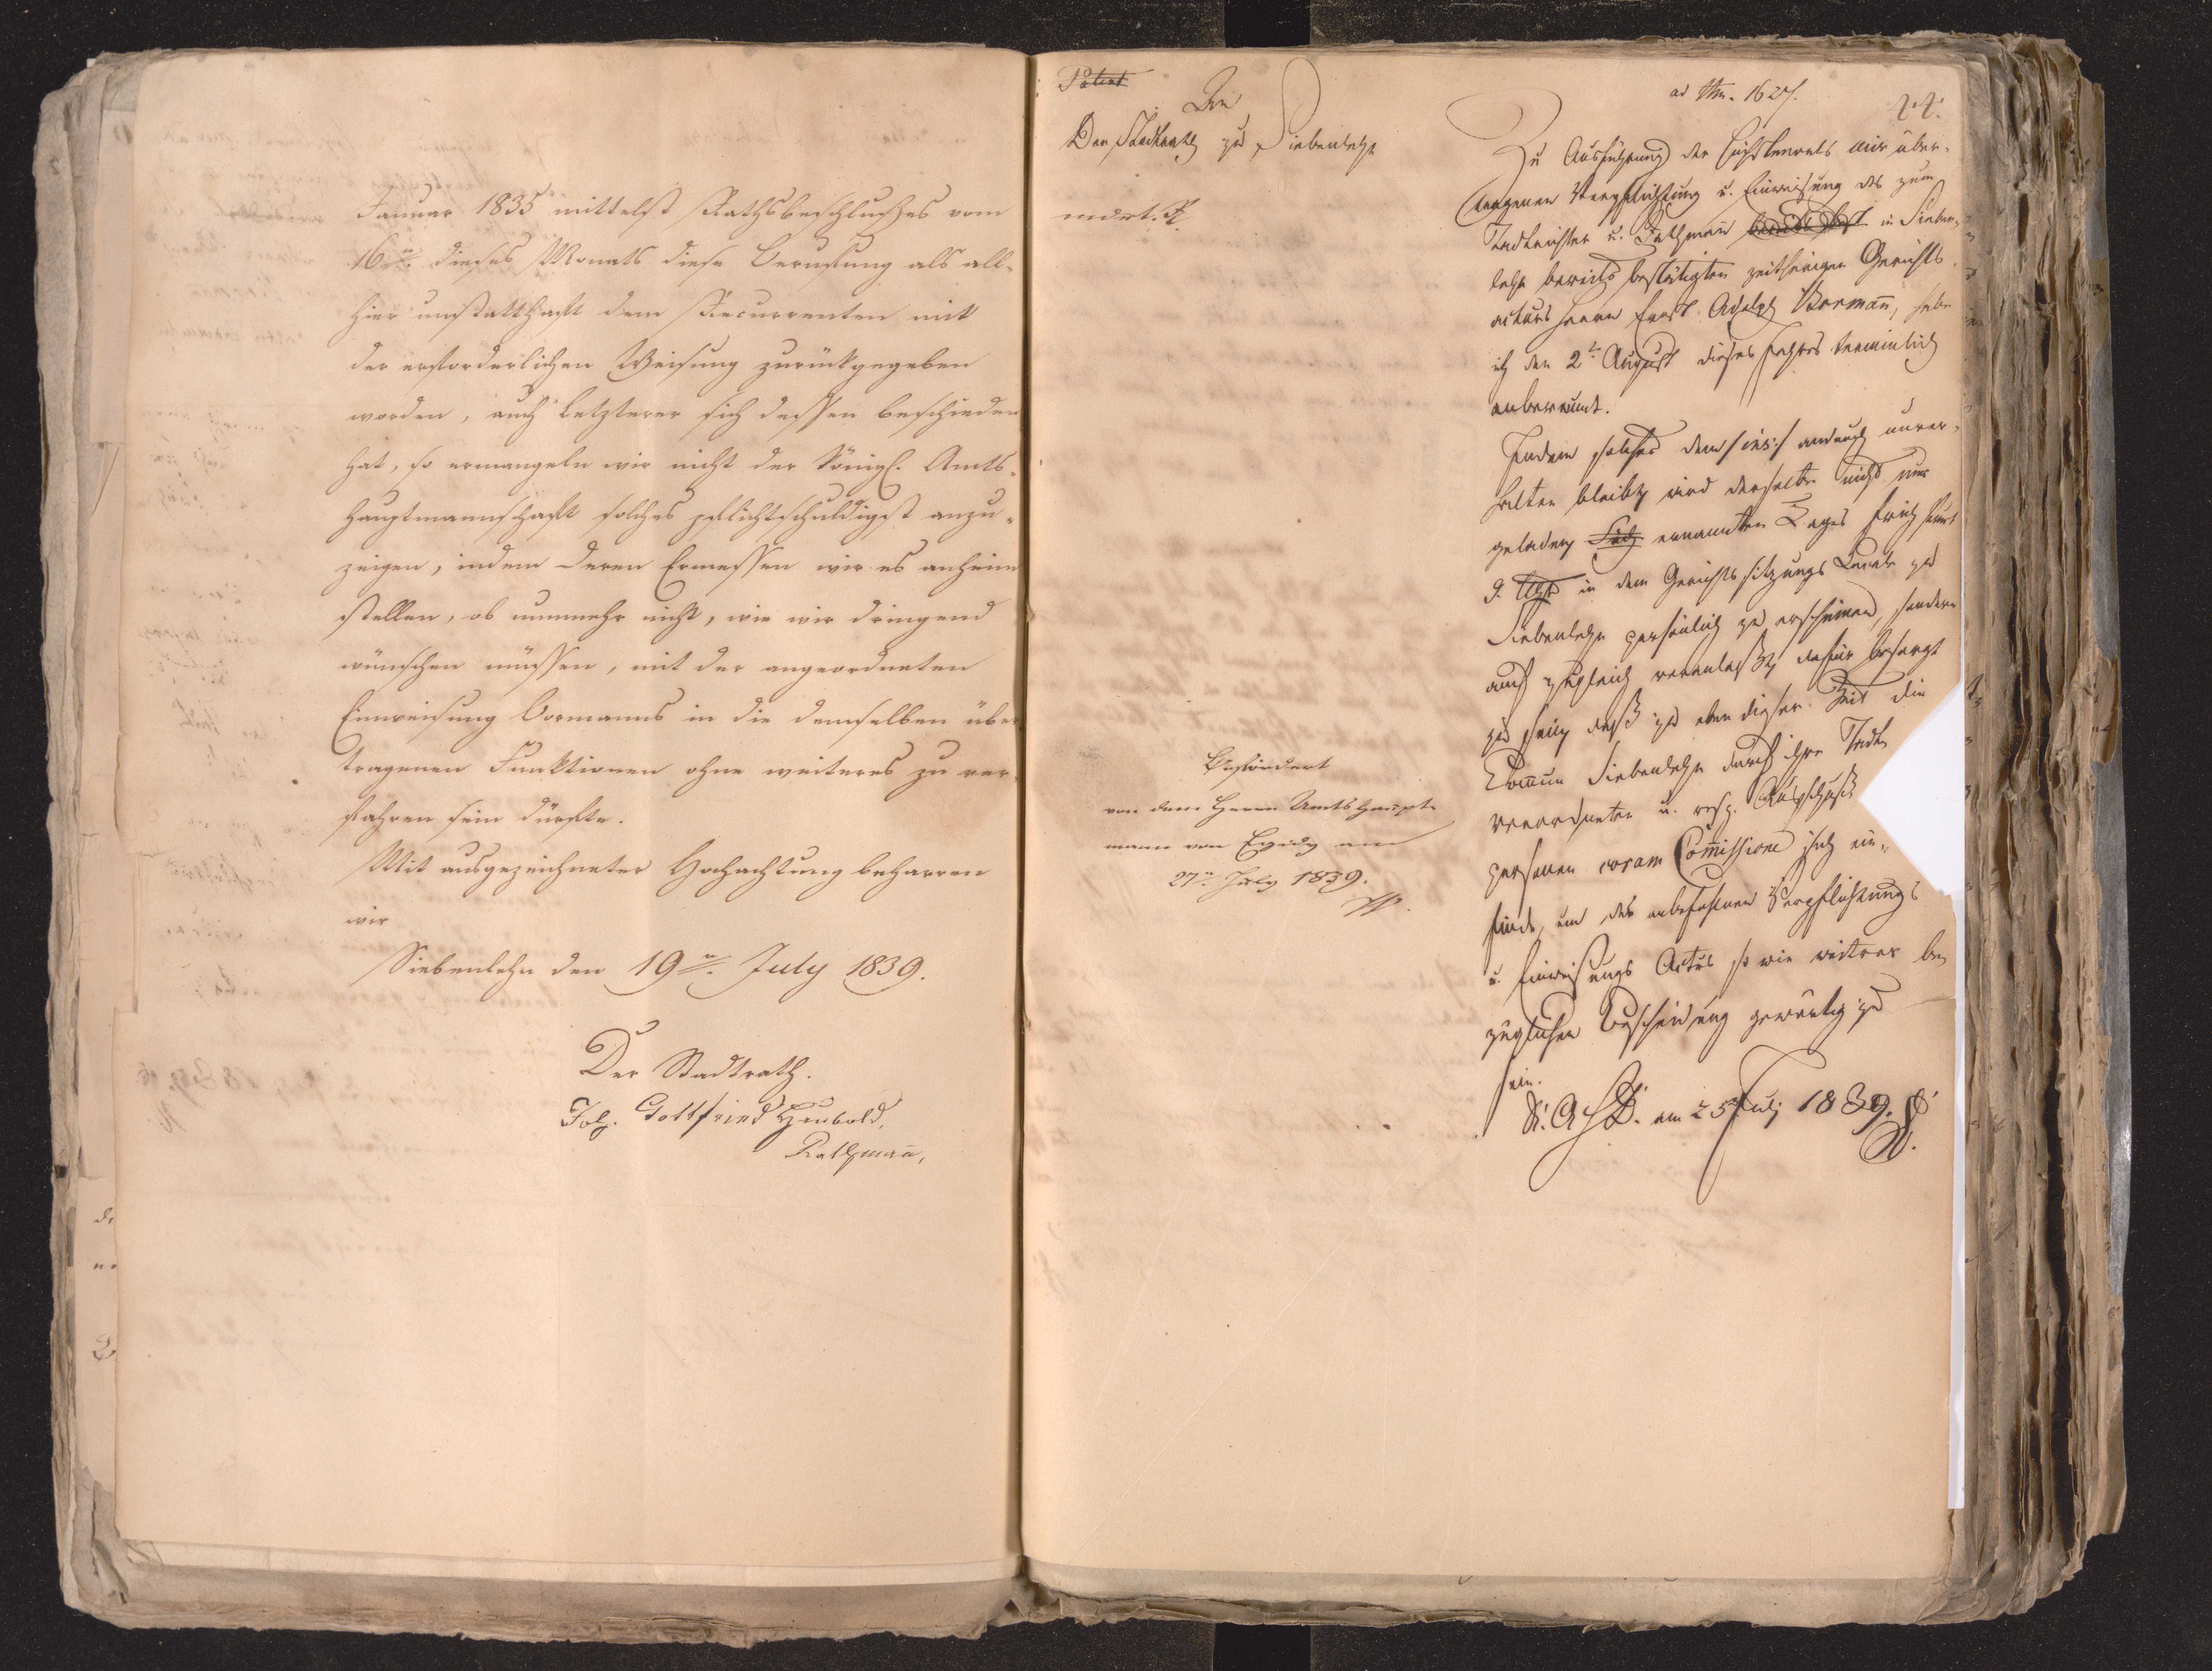 Januar 1835 mittelst Rathsbeschlusses vom
16n. dieses Monats diese Berufung als all-
hier unstatthaft dem Recurrenten mit
der erforderlichen Weisung zurückgegeben
worden, auch letzterer sich dessen beschieden
hat, so ermangeln wir nicht der Königl. Amts-
hauptmannschaft solches pflichtschuldigst anzu-
zeigen, indem deren Ermessen wir es anheim
stellen, ob nunmehr nicht, wie wir dringend
wünschen müssen, mit der angeordneten
Einweisung Bormanns in die demselben über
tragenen Funktionen ohne weiteres zu ver-
fahren sein dürfte.
Mit ausgezeichneter Hochachtung beharren
wir
Siebenlehn den 19n. July 1839.
Der Stadtrath.
Joh. Gottfried Humbold,
Rathmann,
Patent
An
Den Stadtrath zu Siebenlehn
mdrt.
Befördert
von dem Herrn Amtshaupt-
mann von Egidy am
27n July 1839.
ad Nr. 1627.
22.
Zu Ausführung der mir über-
tragenen Verpflichtung u. Einweisung des zum
Stadtrichter u. Rathmann in Sieben-
lehn bereits bestätigten zeitherigen Gerichts-
actuars Herrn Ernst Adolph Bormann, habe
ich den 2t. August dieses Jahres terminlich
anberaumt.
Indem solches dem /ins:/ andurch unver-
halten bleibt, wird derselbe nicht nur
geladen, ernannten Tages früh
9. Uhr in dem Gerichtssitzungs Locale zu
Siebenlehn persönlich zu erscheinen, sondern
auch zugleich veranlaßt, dafür besorgt
zu sein, daß zu eben dieser Zeit die
Commun Siebenlehn durch ihre Stadt
verordneten u. resp. Ausschuß
personen coram Commissione sich ein-
finde, um des anbefohlnen Verpflichtungs
u. Einweisungs Actus so wie weiterer be-
züglicher Bescheidung gewärtig zu
sein.
am 25 July 1839.